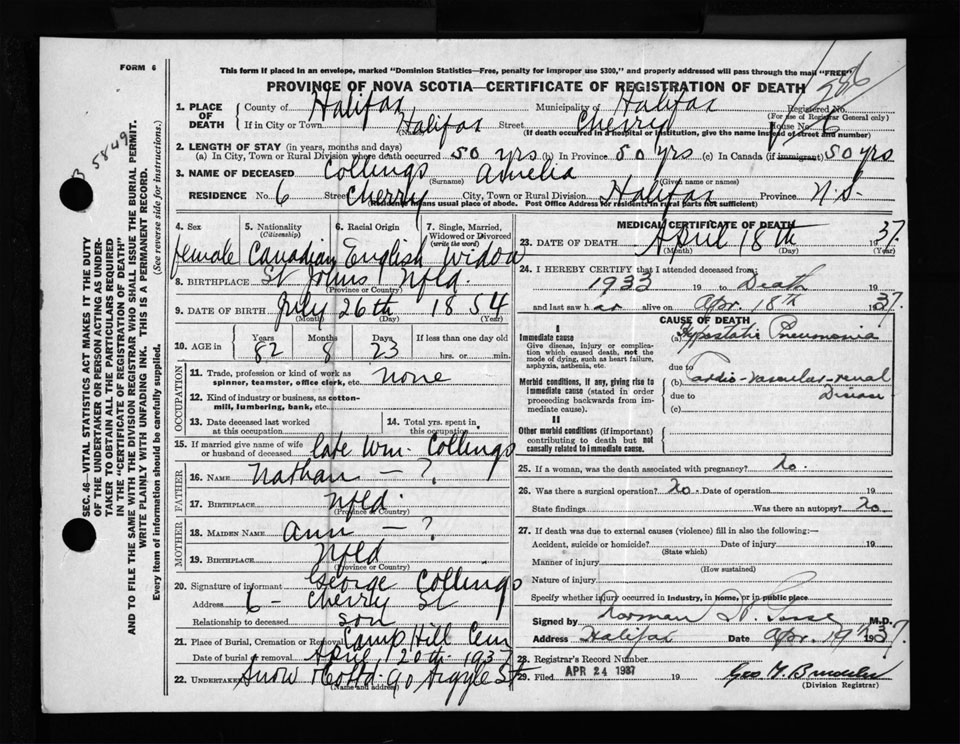 FORM 6
This form if placed in an envelope, marked "Dominion Statistics—Free, penalty for improper use $300," and properly addressed will pass through the mail "FREE"
PROVINCE OF NOVA SCOTIA—CERTIFICATE OF REGISTRATION OF DEATH
586
Registered No.
(For use of Registrar General only)
1. PLACE OF DEATH
County of Halifax Municipality of Halifax
If in City or Town Halifax Street Cherry House No. 6
(If death occurred in a hospital or institution, give the name instead of street and number)
2. LENGTH OF STAY (in years, months and days)
(a) In City, Town or Rural Division where death occurred 50 yrs (b) In Province 50 yrs (c) In Canada (if immigrant) 50 yrs
3. NAME OF DECEASED Collings Amelia
(Surname) (Given name or names)
RESIDENCE No. 6 Street Cherry City, Town or Rural Division Halifax Province N.S.
(Residence means usual place of abode. Post Office Address for residents in rural parts not sufficient)
4. Sex 5. Nationality (Citizenship) 6. Racial Origin 7. Single, Married, Widowed or Divorced (write the word)
female Canadian English Widow
8. BIRTHPLACE St Johns Nfld.
(Province or Country)
9. DATE OF BIRTH July 26th 1854
(Month) (Day) (Year)
10. AGE in Years Months Days If less than one day old
82 8 23 hrs. or min.
OCCUPATION
11. Trade, profession or kind of work as spinner, teamster, office clerk, etc. None
12. Kind of industry or business, as cotton-mill, lumbering, bank, etc.
13. Date deceased last worked at this occupation
14. Total yrs. spent in this occupation
15. If married give name of wife or husband of deceased late Wm. Collings
FATHER
16. NAME Nathan — ?
17. BIRTHPLACE Nfld.
(Province or Country)
MOTHER
18. MAIDEN NAME Ann — ?
19. BIRTHPLACE Nfld
(Province or Country)
20. Signature of informant George Collings
Address 6 - Cherry St
Relationship to deceased son
21. Place of Burial, Cremation or Removal Camp Hill Cem
Date of burial or removal April 20th 1937
22. UNDERTAKER Snow & Co Ltd. 90 Argyle St
(Name and address)
MEDICAL CERTIFICATE OF DEATH
23. DATE OF DEATH April 18th 1937.
(Month) (Day) (Year)
24. I HEREBY CERTIFY that I attended deceased from:
1933 19 to Death 19
and last saw her alive on Apr. 18th 1937.
CAUSE OF DEATH
I
Immediate cause
Give disease, injury or complication which caused death, not the mode of dying, such as heart failure, asphyxia, asthenia, etc.
(a) Hypostatic Pneumonia
due to
Morbid conditions, if any, giving rise to immediate cause (stated in order proceeding backwards from immediate cause).
(b) Cardio-vascular-renal
due to Disease
(c)
II
Other morbid conditions (if important) contributing to death but not causally related to immediate cause.
25. If a woman, was the death associated with pregnancy? No.
26. Was there a surgical operation? No. Date of operation 19
State findings Was there an autopsy? No.
27. If death was due to external causes (violence) fill in also the following:—
Accident, suicide or homicide? Date of injury 19
(State which)
Manner of injury
(How sustained)
Nature of injury
Specify whether injury occurred in industry, in home, or in public place
Signed by Norman H. M.D.
Address Halifax Date Apr. 19th 1937.
28. Registrar's Record Number
29. Filed APR 24 1937 Geo.
(Division Registrar)
58491
SEC. 46—VITAL STATISTICS ACT MAKES IT THE DUTY
OF THE UNDERTAKER OR PERSON ACTING AS UNDER-
TAKER TO OBTAIN ALL THE PARTICULARS REQUIRED
IN THE "CERTIFICATE OF REGISTRATION OF DEATH"
AND TO FILE THE SAME WITH THE DIVISION REGISTRAR WHO SHALL ISSUE THE BURIAL PERMIT.
WRITE PLAINLY WITH UNFADING INK. THIS IS A PERMANENT RECORD.
Every item of information should be carefully supplied. (See reverse side for instructions.)